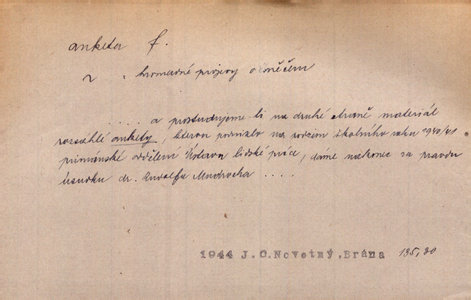 anketa f.
~ hromadné projevy o něčem
.... a prostudujeme-li na druhé straně materiál
rozsáhlé ankety, kterou podnikla na podzim školního roku 1940/41
primánské oddělení Ústavu lidské práce, dáme nakonec za pravdu
úsudku dr. Rudolfa Mudrocha ....
1944 J.C.Novotný,Brána 135,30